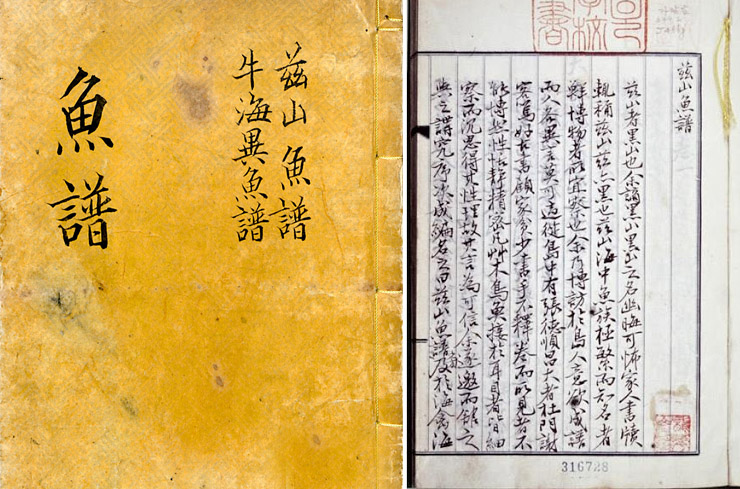 茲山魚譜
牛海異魚譜
魚譜
茲山魚譜
茲山者黑山也余謫黑山黑山之名幽晦可怖家人書牘
輒稱茲山茲亦黑也茲山海中魚族極繁而知名者
鮮博物者所宜察也余乃博訪於島人意欲成譜
而人各異言莫可適從島中有張德順昌大者杜門謝
客篤好古書顧家貧少書手不釋卷而所見者不
能博然性恬靜精密凡艸木鳥魚接於耳目者皆細
察而沉思得其性理故其言為可信余遂邀而館之
與之講究序次成編名之曰茲山魚譜旁及於海禽海
316728